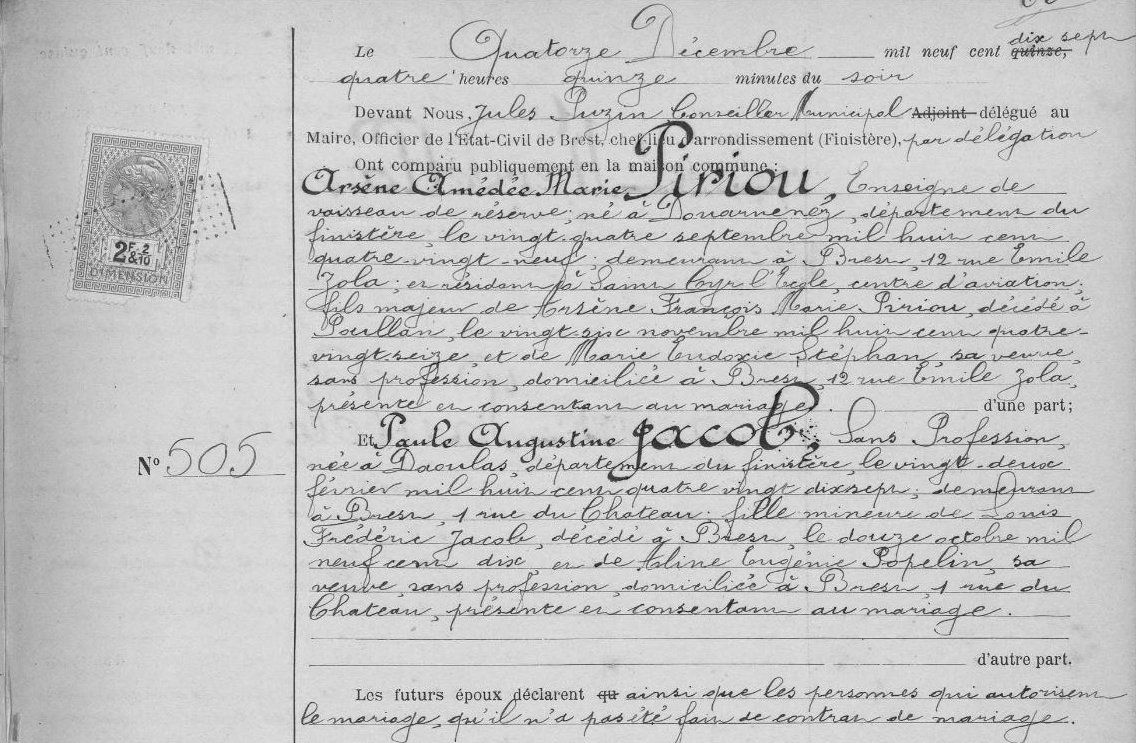 Le Quatorze Décembre mil neuf cent quinze, dix sept
quatre heures quinze minutes du soir
Devant Nous, Jules Puzin Conseiller Municipal Adjoint délégué au
Maire, Officier de l'État-Civil de Brest, chef-lieu d'arrondissement (Finistère), par délégation
Ont comparu publiquement en la maison commune :
Arsène Amédée Marie Piriou, Enseigne de
vaisseau de réserve ; né à Douarnenez, département du
finistère, le vingt-quatre septembre mil huit cent
quatre-vingt-neuf ; demeurant à Brest, 12 rue Emile
Zola ; et résidant à Saint Cyr l'Ecole, centre d'aviation ;
fils majeur de Arsène François Marie Piriou, décédé à
Poullan, le vingt-six novembre mil huit cent quatre-
vingt-seize, et de Marie Eudoxie Stéphan, sa veuve,
sans profession, domiciliée à Brest, 12 rue Emile Zola,
présente et consentant au mariage. d'une part ;
Et Paule Augustine Jacob, Sans Profession,
née à Daoulas, département du finistère, le vingt-deux
février mil huit cent quatre vingt dix sept ; demeurant
à Brest, 1 rue du Chateau : fille mineure de Louis
Frédéric Jacob, décédé à Brest, le douze octobre mil
neuf cent dix, et de Aline Eugénie Popelin, sa
veuve, sans profession, domiciliée à Brest, 1 rue du
Chateau, présente et consentant au mariage.
d'autre part.
Les futurs époux déclarent qu ainsi que les personnes qui autorisent
le mariage, qu'il n'a pas été fait de contrat de mariage.
No 505
2 F & 2/10
DIMENSION